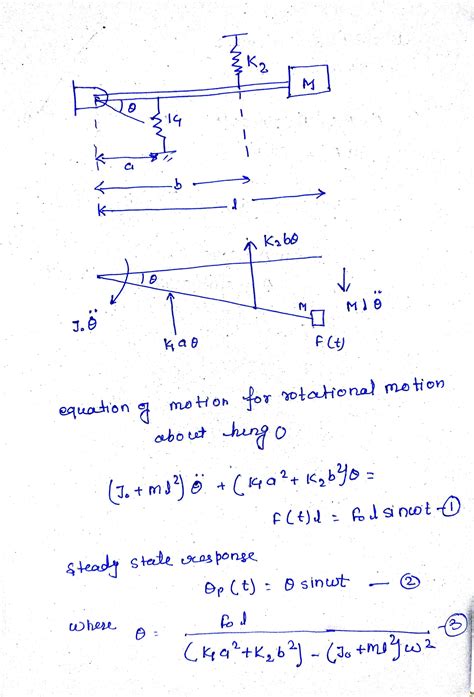 K2
M
θ
K1
a
b
l
K2bθ
θ
J0 θ̈
M
M l θ̈
K1 a θ
f(t)
equation of motion for rotational motion
about hing O
(J0 + ml²) θ̈ + (K1a² + K2b²)θ =
f(t)l = f0 l sinωt - ①
steady state response
θp(t) = θ sinωt — ②
where θ = f0 l / (K1a² + K2b²) - (J0 + ml²)ω² - ③